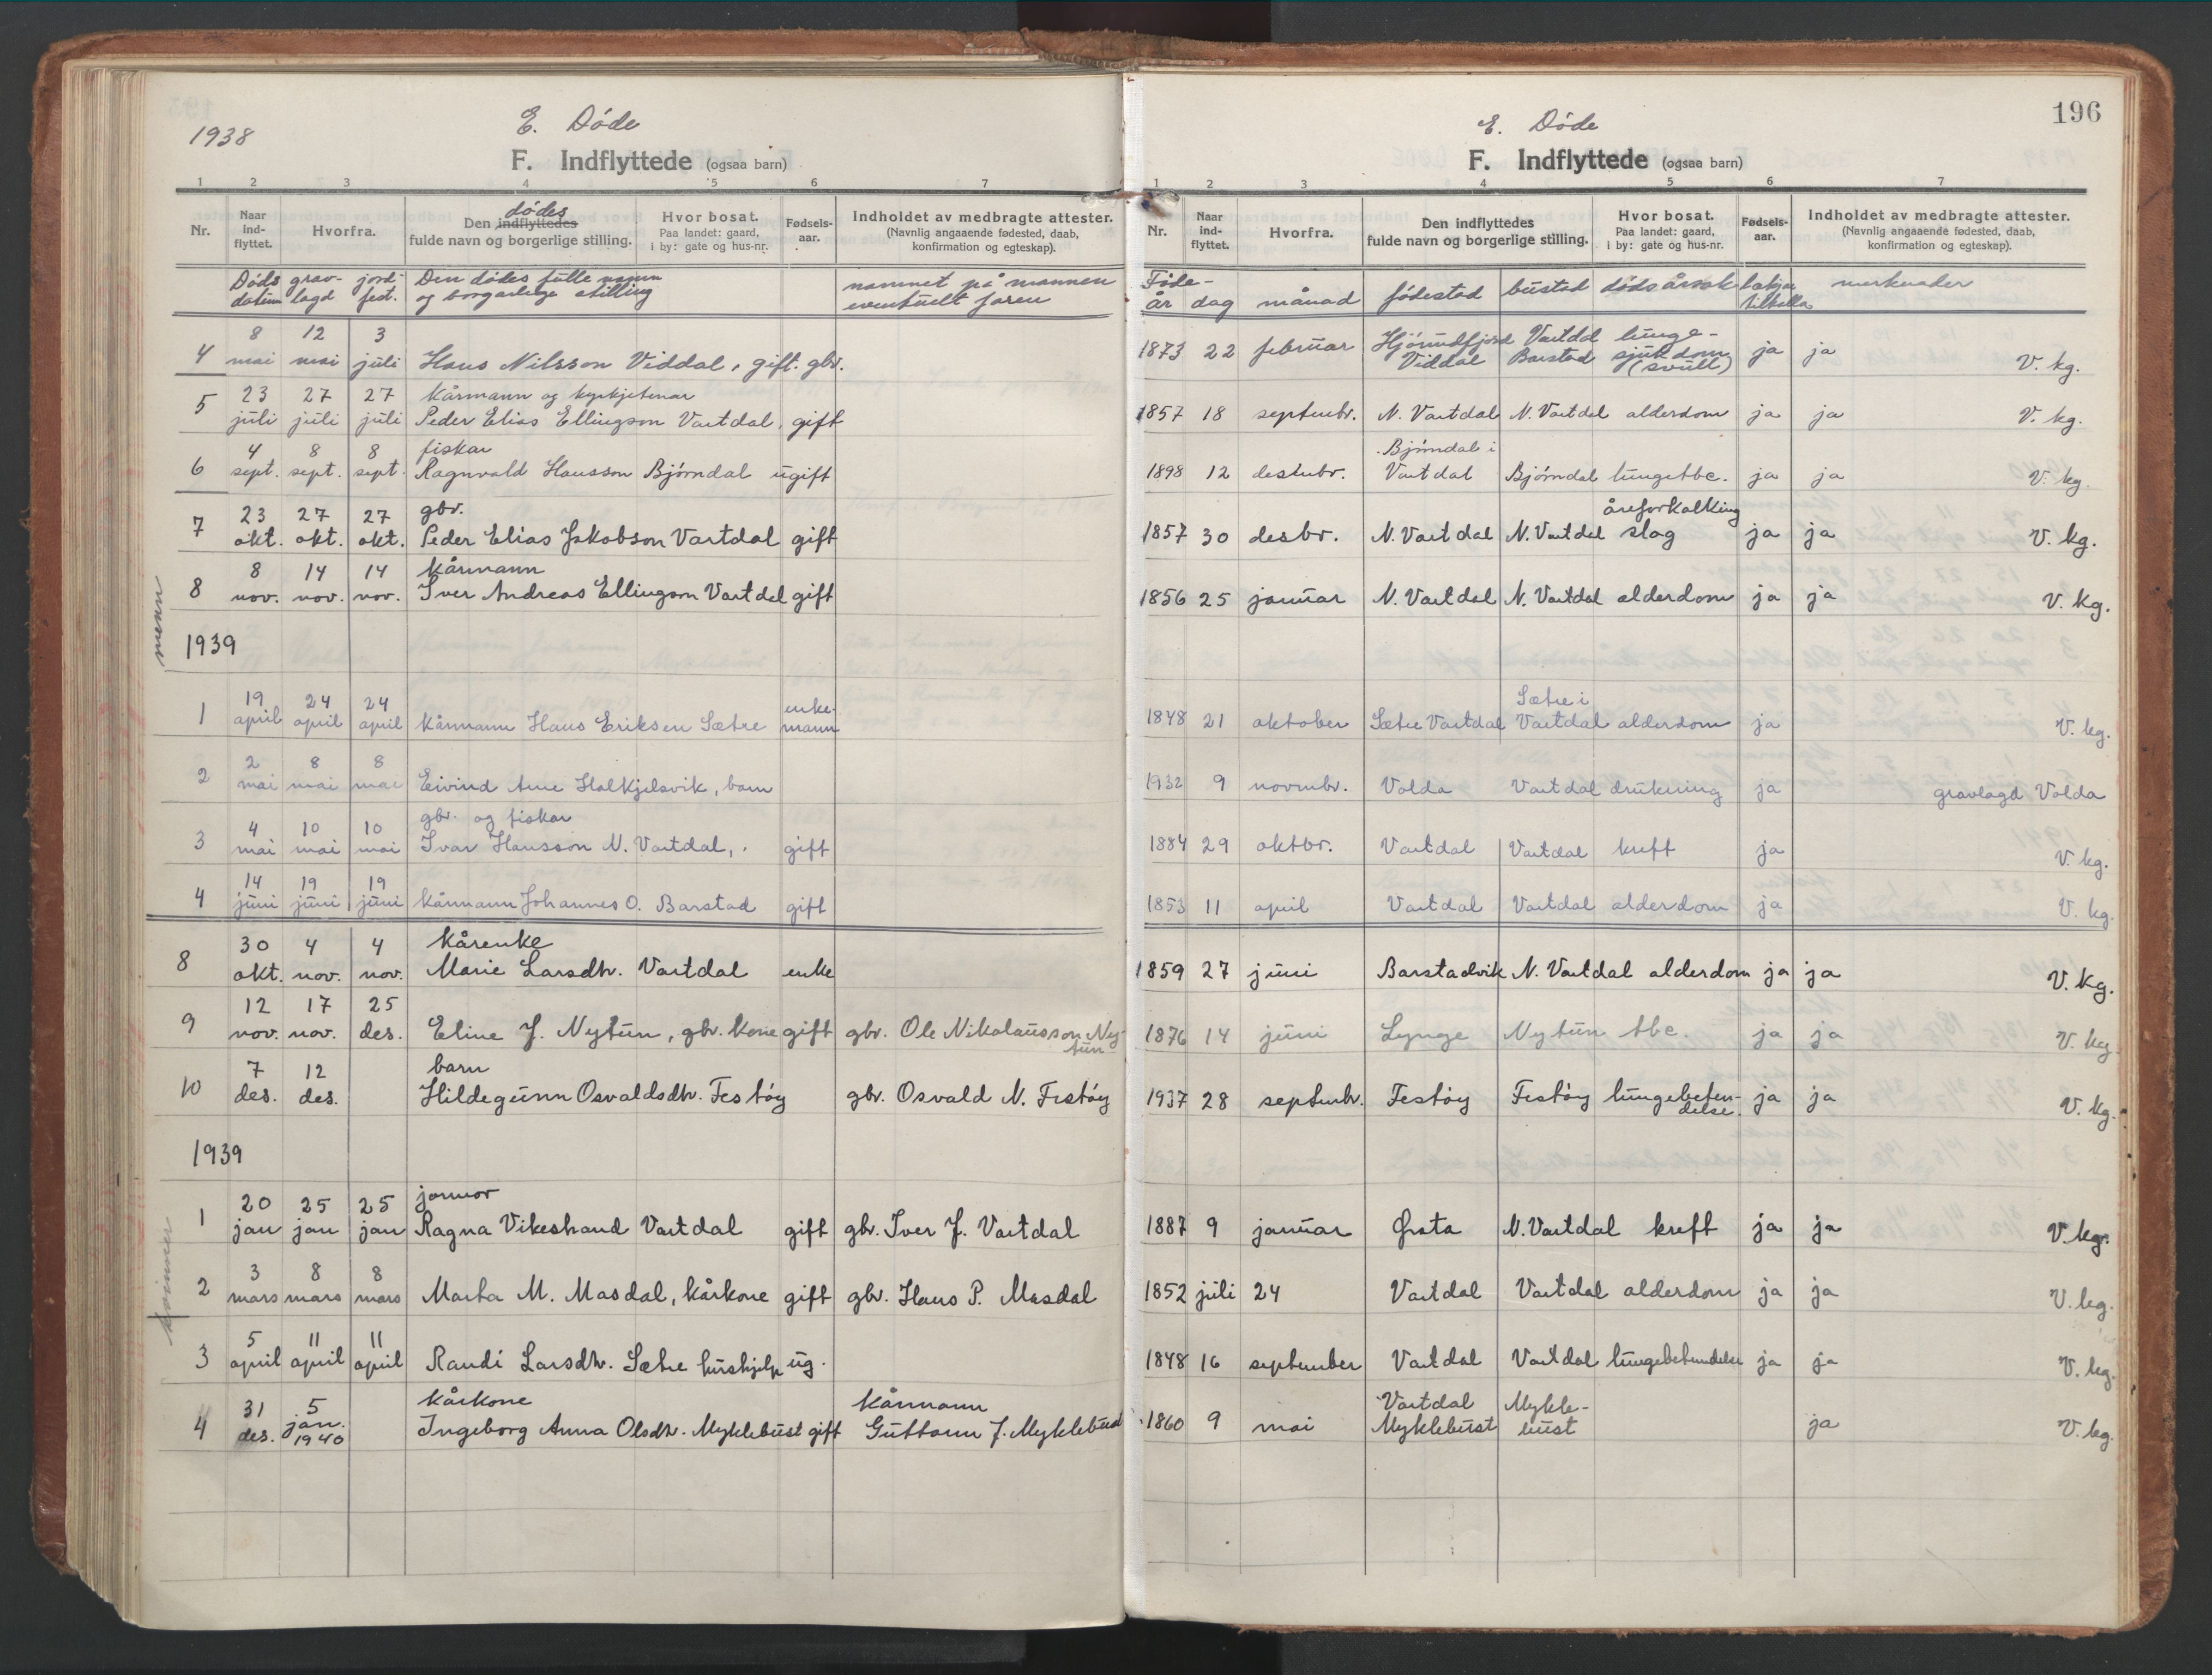 1938
E. Døde
F. Indflyttede (ogsaa barn)
1 2 3 4 5 6 7
Nr. Naar ind-flyttet. Hvorfra. Den indflyttedes dødes fulde navn og borgerlige stilling. Hvor bosat. Paa landet: gaard, i by: gate og hus-nr. Fødsels-aar. Indholdet av medbragte attester. (Navnlig angaaende fødested, daab, konfirmation og egteskap).
Døds datum grav-lagd jord-fest. Den dødes fulle namn og borgarlege stilling namnet på mannen eventuelt faren
menn
4 8 mai 12 mai 3 juli Hans Nilsson Viddal, gift. gbr.
5 23 juli 27 juli 27 juli Kårmann og kyrkjetenar
Peder Elias Ellingson Vartdal, gift
6 4 sept. 8 sept. 8 sept. fiskar
Ragnvald Hansson Bjørndal ugift
7 23 okt. 27 okt. 27 okt. gbr.
Peder Elias Jakobson Vartdal gift
8 8 nov. 14 nov. 14 nov. Kårmann
Iver Andreas Ellingson Vartdal gift
1939
1 19 april 24 april 24 april Kårmann Hans Eriksen Sætre enke-mann
2 2 mai 8 mai 8 mai Eivind Arne Halkjelsvik, barn
3 4 mai 10 mai 10 mai gbr. og fiskar
Ivar Hansson N. Vartdal, gift
4 14 juni 19 juni 19 juni Kårmann Johannes O. Barstad gift
8 30 okt. 4 nov. 4 nov. Kårenke
Marie Larsdtr. Vartdal enke
9 12 nov. 17 nov. 25 des. Eline J. Nytun, gbr. kone gift gbr. Ole Nikolausson Nytun
10 7 des. 12 des. barn
Hildegunn Osvaldsdtr. Festøy gbr. Osvald N. Festøy
1939
kvinner
1 20 jan 25 jan 25 jan jormor
Ragna Vikeshand Vartdal gift gbr. Iver J. Vartdal
2 3 mars 8 mars 8 mars Marta M. Masdal, kårkone gift gbr. Hans P. Masdal
3 5 april 11 april 11 april Randi Larsdtr. Sætre hushjelp ug.
4 31 des. 5 jan. 1940 Kårkone Kårmann
Ingeborg Anna Olsdtr. Myklebust gift Guttorm J. Myklebust
196
E. Døde
F. Indflyttede (ogsaa barn)
1 2 3 4 5 6 7
Nr. Naar ind-flyttet. Hvorfra. Den indflyttedes fulde navn og borgerlige stilling. Hvor bosat. Paa landet: gaard, i by: gate og hus-nr. Fødsels-aar. Indholdet av medbragte attester. (Navnlig angaaende fødested, daab, konfirmation og egteskap).
Føde-år dag månad fødestad bustad dødsårsak merknader
1873 22 februar Hjørundfjord Viddal Vartdal Barstad lunge-sjukdom (svull) ja ja V. kg.
1857 18 septembr. N. Vartdal N. Vartdal alderdom ja ja V. kg.
1898 12 desembr. Bjørndal i Vartdal Bjørndal lungetbc. ja ja V. kg.
1857 30 desbr. N. Vartdal N. Vartdal åreforkalking slag ja ja V. kg.
1856 25 januar N. Vartdal N. Vartdal alderdom ja ja V. kg.
1848 21 oktober Sætre Vartdal Sætre i Vartdal alderdom ja V. kg.
1932 9 novmbr. Volda Vartdal drukning ja gravlagd Volda
1884 29 oktbr. Vartdal Vartdal kreft ja V. kg.
1853 11 april Vartdal Vartdal alderdom ja V. kg.
1859 27 juni Barstadvik N. Vartdal alderdom ja ja V. kg.
1876 14 juni Lynge Nytun tbc. ja ja V. kg.
1937 28 septembr. Festøy Festøy lungebeten-delse. ja ja V. kg.
1887 9 januar Ørsta N. Vartdal kreft ja ja V. kg.
1852 juli 24 Vartdal Vartdal alderdom ja ja V. kg.
1848 16 september Vartdal Vartdal lungebetendelse ja ja V. kg.
1860 9 mai Vartdal Myklebust Mykle-bust ja V. kg.